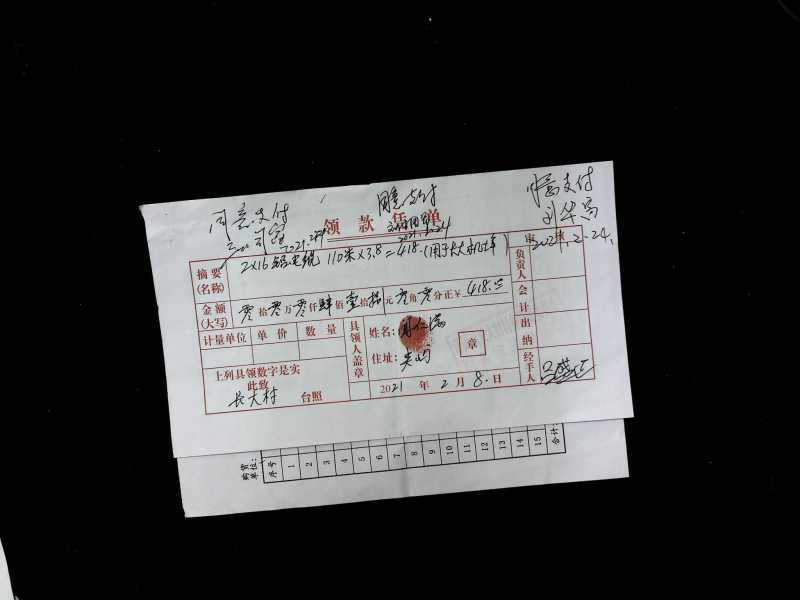 同意支付
2021.2.24
同意支付
2021.2.24
同意支付
刘华富
2021.2.24.
领款凭单
摘要(名称) 2×16铝电缆 110米×3.8=418.
金额(大写) 零拾零万零仟肆佰壹拾捌元零角零分正¥418.00
计量单位 单价 数量
上列具领数字是实
此致
长大村 台照
具领人盖章
姓名:
住址:
章
2021年2月8.日
审核
负责人
会计
出纳
经手人
购货单位:
序号 1 2 3 4 5 6 7 8 9 10 11 12 13 14 15 合计: